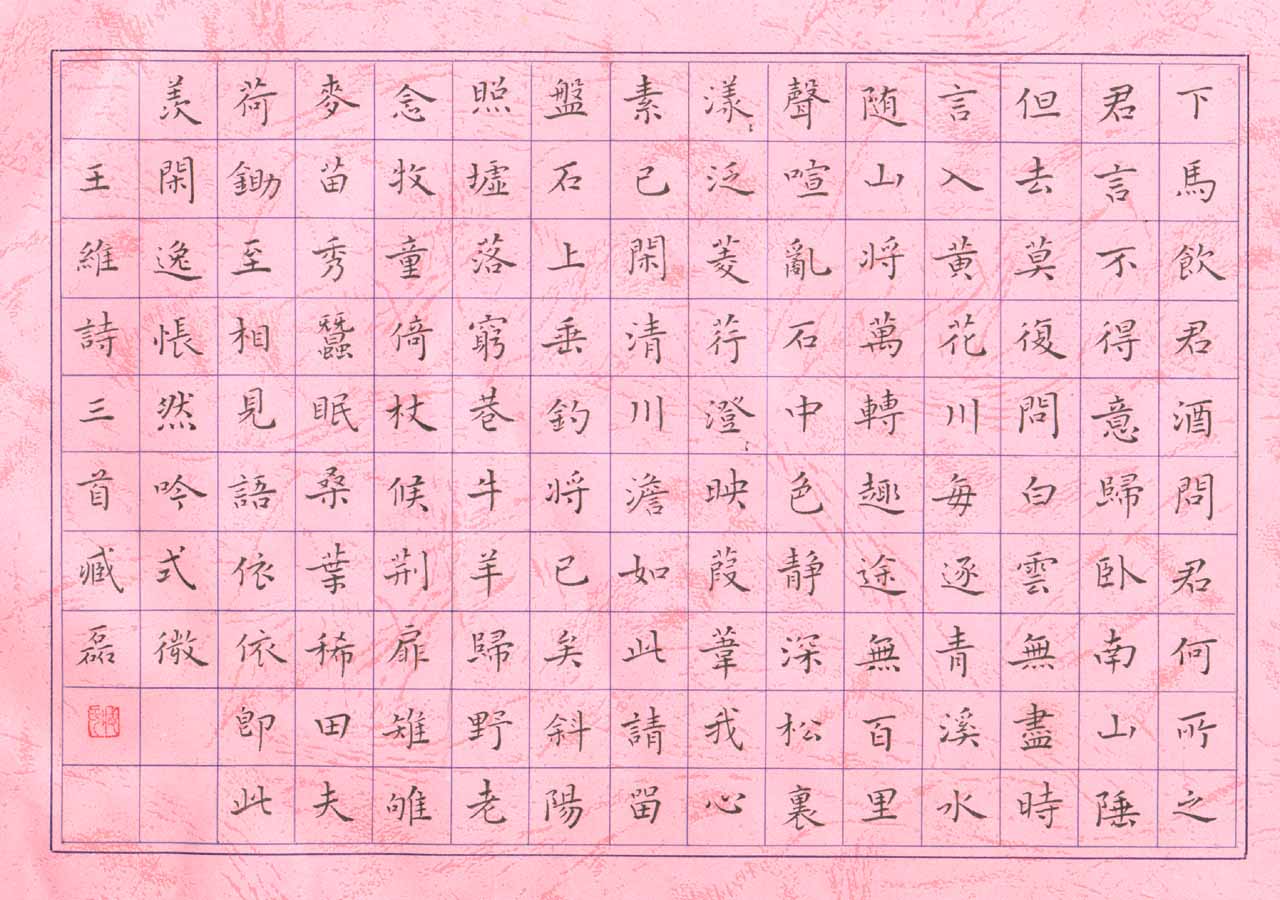 下馬飲君酒問君何所之
君言不得意歸臥南山陲
但去莫復問白雲無盡時
言入黃花川每逐青溪水
随山將萬轉趣途無百里
聲喧亂石中色静深松裏
漾:泛菱荇澄:映葭葦我心
素已閑清川澹如此請留
盤石上垂釣將已矣斜陽
照墟落窮巷牛羊歸野老
念牧童倚杖候荆扉雉雊
麥苗秀蠶眠桑葉稀田夫
荷鋤至相見語依依即此
羨閑逸悵然吟式微
王維詩三首臧磊